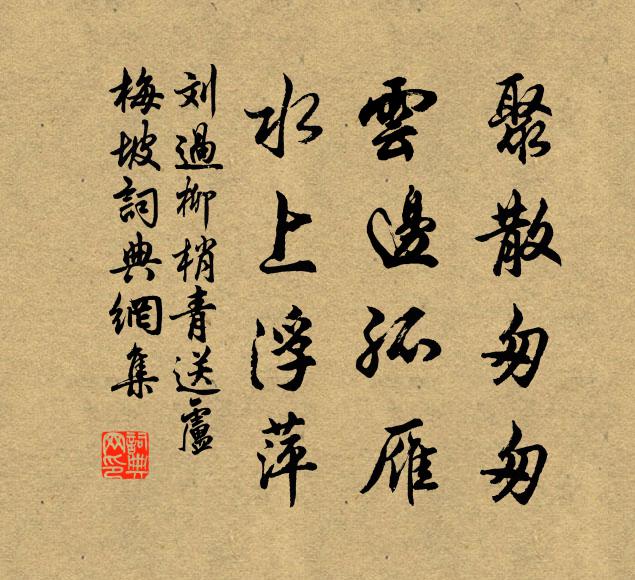 聚散匆匆
雲邊孤雁
水上浮萍
刘過柳梢青送盧
梅坡詞典網集
詞典網印